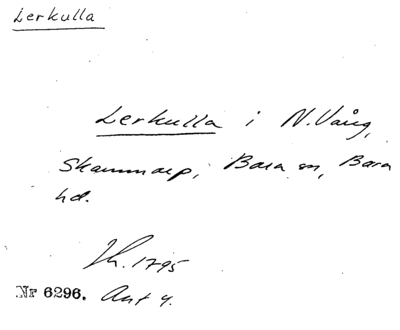 Lerkulla
Lerkulla i N. Vång,
Skammarp, Bara sn, Bara
hd.
Kh. 1795
Nr 6296. Akt 4.